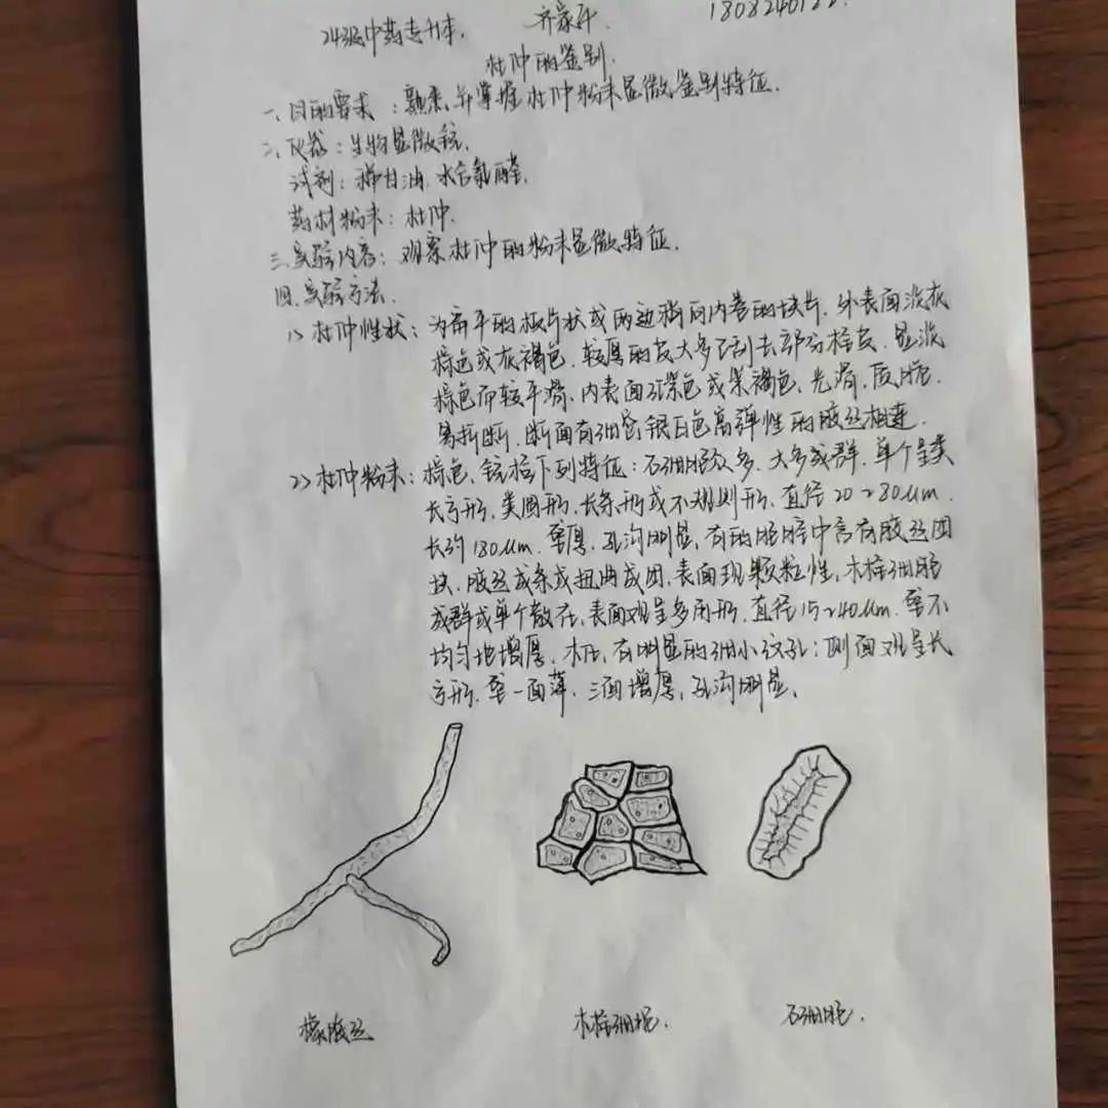 24级中药专升本.
杜仲的鉴别.
一、目的要求:熟悉并掌握杜仲粉末显微鉴别特征.
二、仪器:生物显微镜.
试剂:稀甘油.水合氯醛.
药材粉末:杜仲.
三.实验内容:观察杜仲的粉末显微特征.
四.实验方法.
1>杜仲性状:为扁平的板片状或两边稍向内卷的块片.外表面淡灰
棕色或灰褐色.较厚的皮大多已刮去部分栓皮.显淡
棕色而较平滑.内表面红紫色或紫褐色.光滑.质脆.
易折断.断面有细密银白色高弹性的胶丝相连.
2>杜仲粉末:棕色.镜检下列特征:石细胞众多.大多成群.单个呈类
长方形.类圆形.长条形或不规则形.直径20~80μm.
长约180μm.壁厚.孔沟明显.有的胞腔中含有胶丝团
块.胶丝成条或扭曲成团.表面现颗粒性.木栓细胞
成群或单个散在.表面观呈多角形.直径15~40μm.壁不
均匀地增厚.木化.有明显的细小纹孔;侧面观呈长
方形.壁一面薄.三面增厚.孔沟明显.
橡胶丝
木栓细胞.
石细胞.